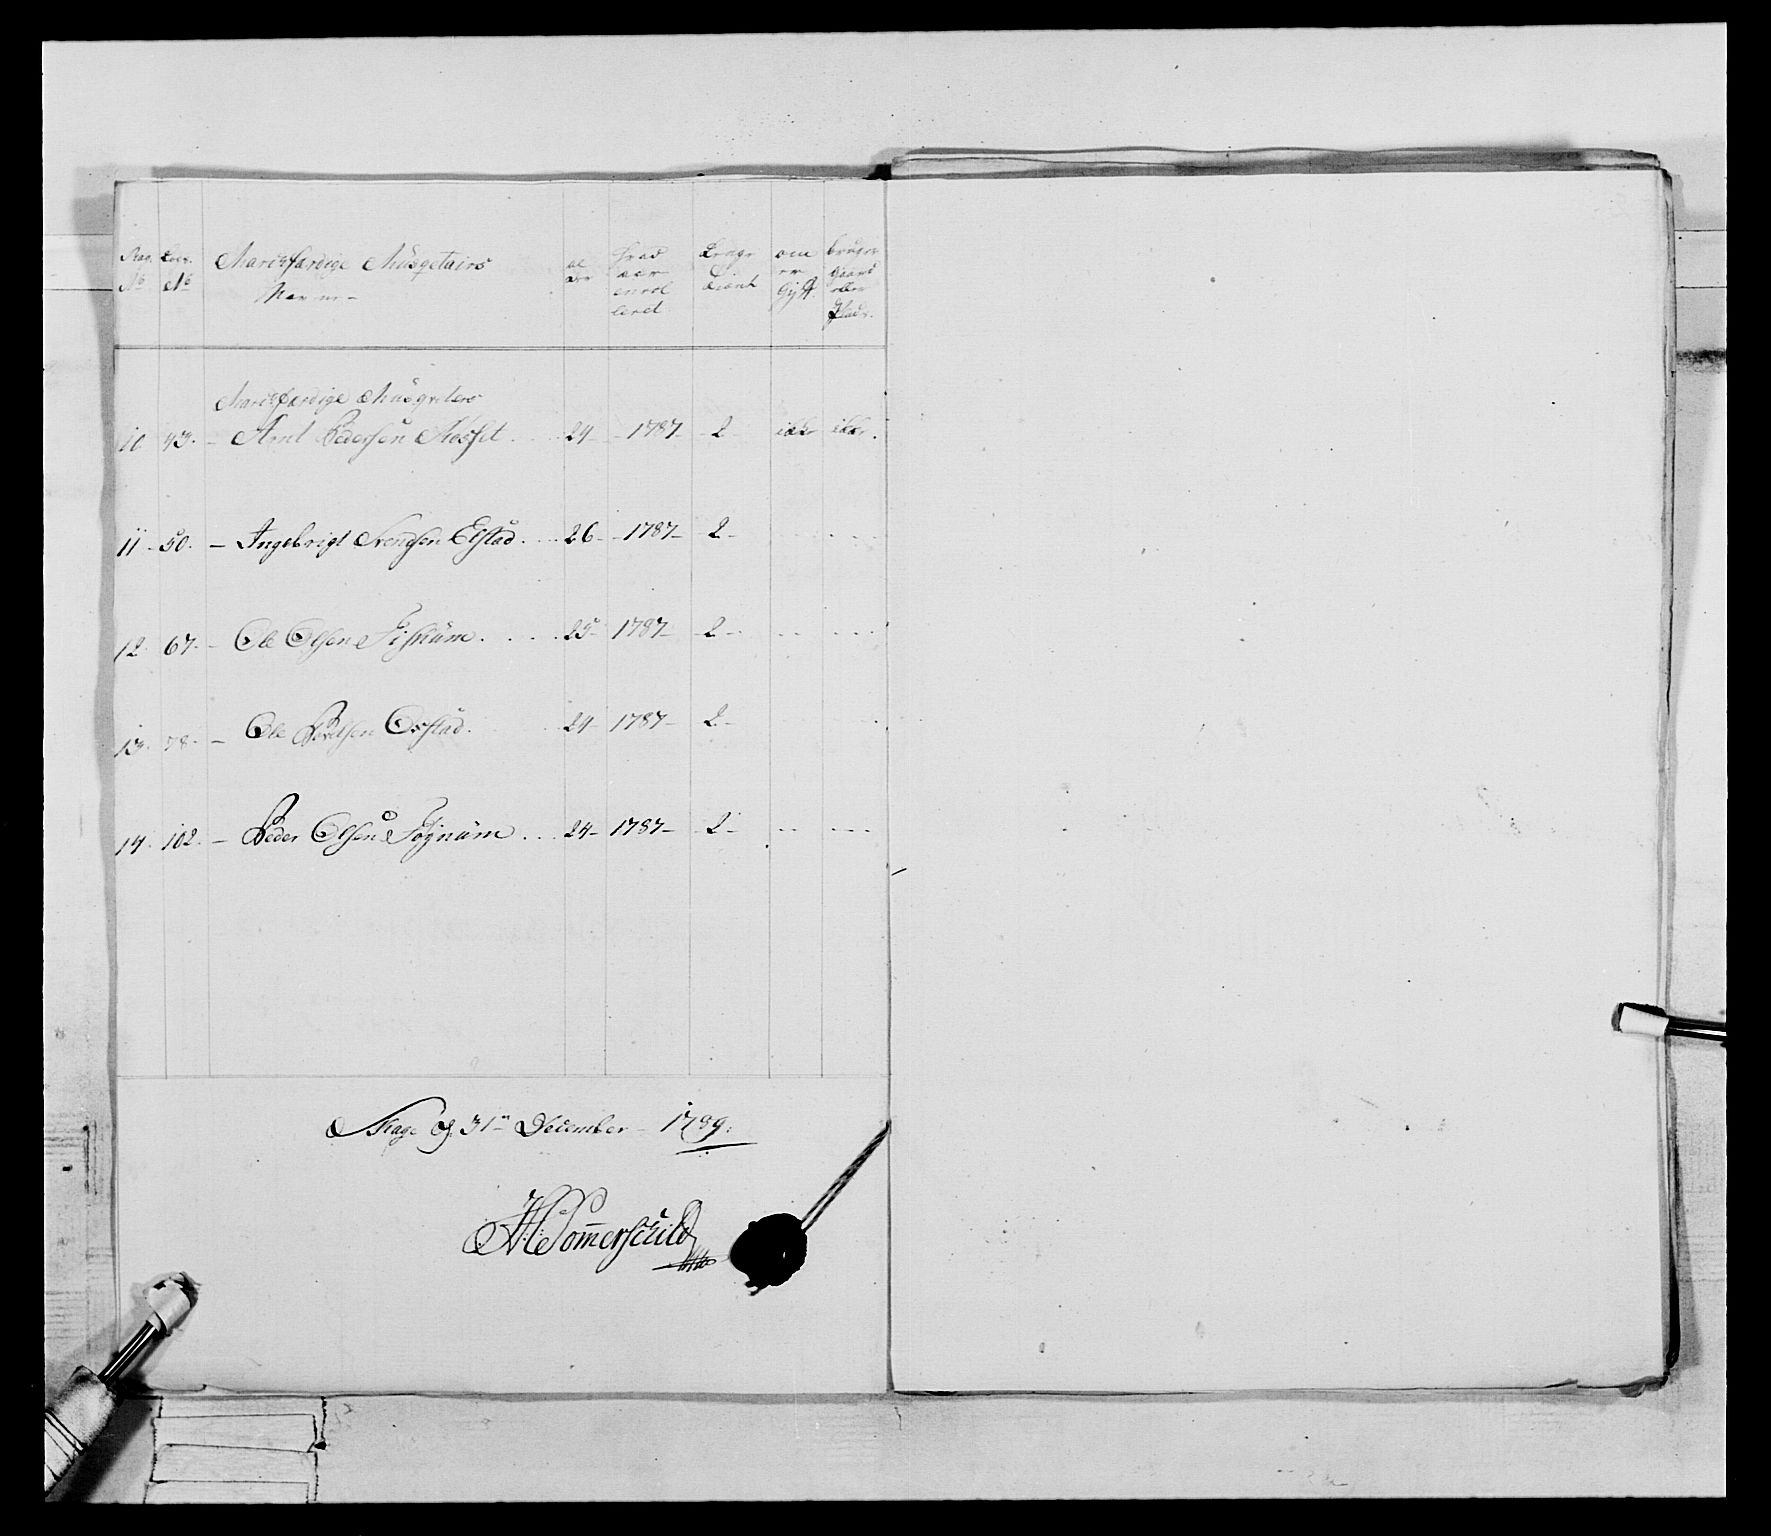 No No Marschfærdige Musqetairs
Navne
al
der
hvad
aar
enrol
leret
Længe
tient
om
er
Gift
bruger
Gaard
eller
Plads.
Marschfærdige Musqeters
10 43. - Arnt Pedersen Mosset . . 24 - 1787 - 2 - ikke ikke.
11 - 50. - Ingebrigt Svendsen Elstad . . . 26 - 1787 - 2 -
12. 67. - Ole Olsen Fisknüm . . . . 25 - 1787 - 2 - . . . . .
13. 78. - Ole Bordsen Osstad. 24 - 1787 - 2 -
14. 102. - Peder Olsen Fognüm . . . 24 - 1787 - 2 - . . . . .
Skage d. 31te December - 1789.
H Som̄erschild